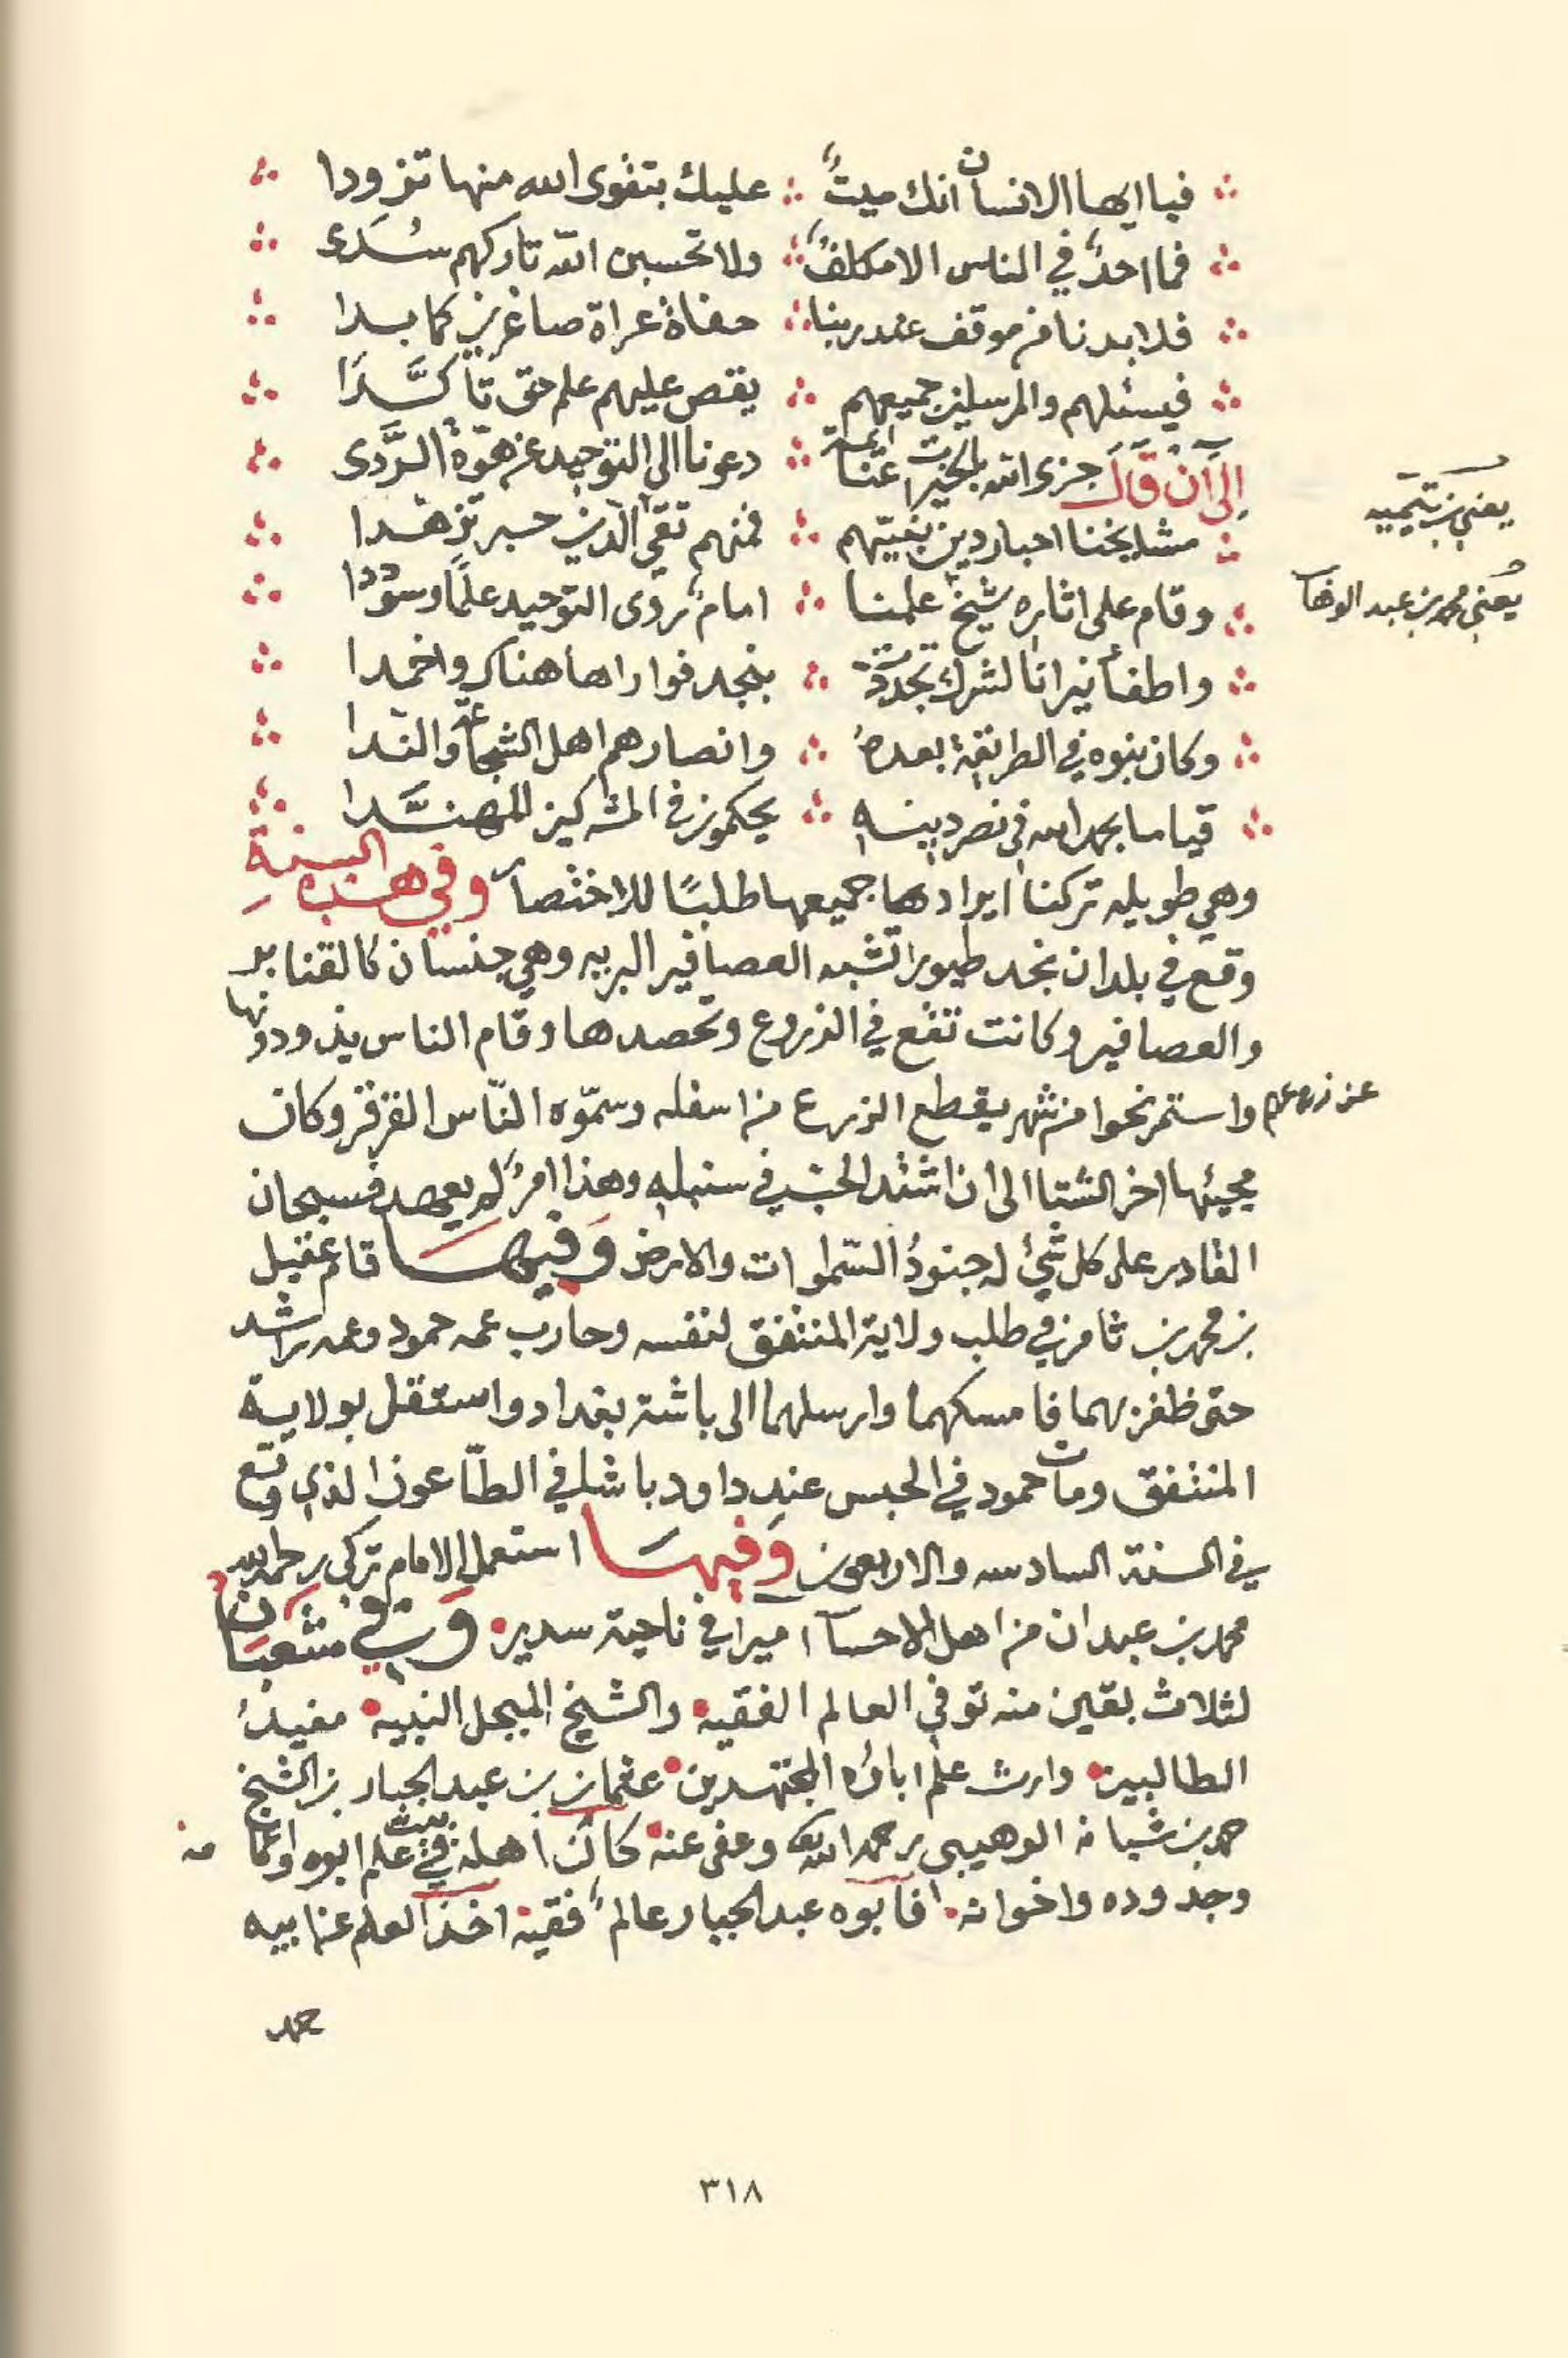 فيا ايها الانسان انك ميتٌ ∴ عليك بتقوى الله منها تزودا
فما احدٌ في الناس الا مكلفٌ ∴ ولا تحسبن الله تاركهم سُدَى
فلا بد نا من موقف عند ربنا ∴ حفاةً عراة صاغرين كما بدا
فيسئلهم والمرسلين جميعهم ∴ يقص عليهم علم حق تأكَّدَا
إلى أن قال جزى الله بالخيرات عنّا ائمة ∴ دعونا الى التوحيد عن هوّة الرَّدى
يعني بن تيميه
مشايخنا احبار دين نبيّهم ∴ فمنهم تقي الدين حبر تزهدا
يعني محمد بن عبد الوهاب
وقام على اثاره شيخ علمنا ∴ امامٌ روى التوحيد علمًا وسوددا
واطفأ نيرانا لشرك تجددت ∴ بنجد فواراها هناك واخمدا
وكان بنوه في الطريقة بعدهُ ∴ وانصارهم اهل الشجاعة والندا
قياما بحمد الله في نصر دينه ∴ يحكمون في المشركين المهنَّدا
وهي طويله تركنا ايرادها جميعها طلبًا للاختصار وفي هذه السنة
وقع في بلدان نجد طيورا تشبه العصافير البريه وهي جنسان كالقنابر
والعصافير وكانت تقع في الزروع وتحصدها وقام الناس يذودونها
عن زرعهم واستمر نحوا من شهر يقطع الزرع من اسفله وسمّوه النّاس القزقز وكان
مجيئها اخر الشتا الى ان اشتد الحب في سنبله وهذا امرٌ لم يعهد فسبحان
القادر على كل شيٍ له جنودُ السّموات والارض وَفيهَا قام عقيل
بن محمد بن ثامر في طلب ولاية المنتفق لنفسه وحارب عمه حمود وعمه راشد
حتى ظفر بهما فامسكهما وارسلهما الى باشة بغداد واستقل بولاية
المنتفق ومات حمود في الحبس عند داود باشا في الطّاعون الذي وقع
في السنة السادسه والاربعون وَفيهَا استعمل الامام تركي رحمه الله
محمد بن عبدان من اهل الاحسا اميرا في ناحية سدير وَفي شعبَان
لثلاث بقين منه توفي العالم الفقيه والشيخ المبجل النبيه مفيدُ
الطالبين وارث علم ابائه المجتهدين عثمان بن عبد الجبار بن الشيخ
حمد بن شبانه الوهيبي رحمه الله وعفى عنه كان اهله في بيت علم ابوه واعمامه
وجدوده واخوانه فأبوه عبد الجبار عالمٌ فقيه اخذ العلم عن ابيه
حمد
٣١٨